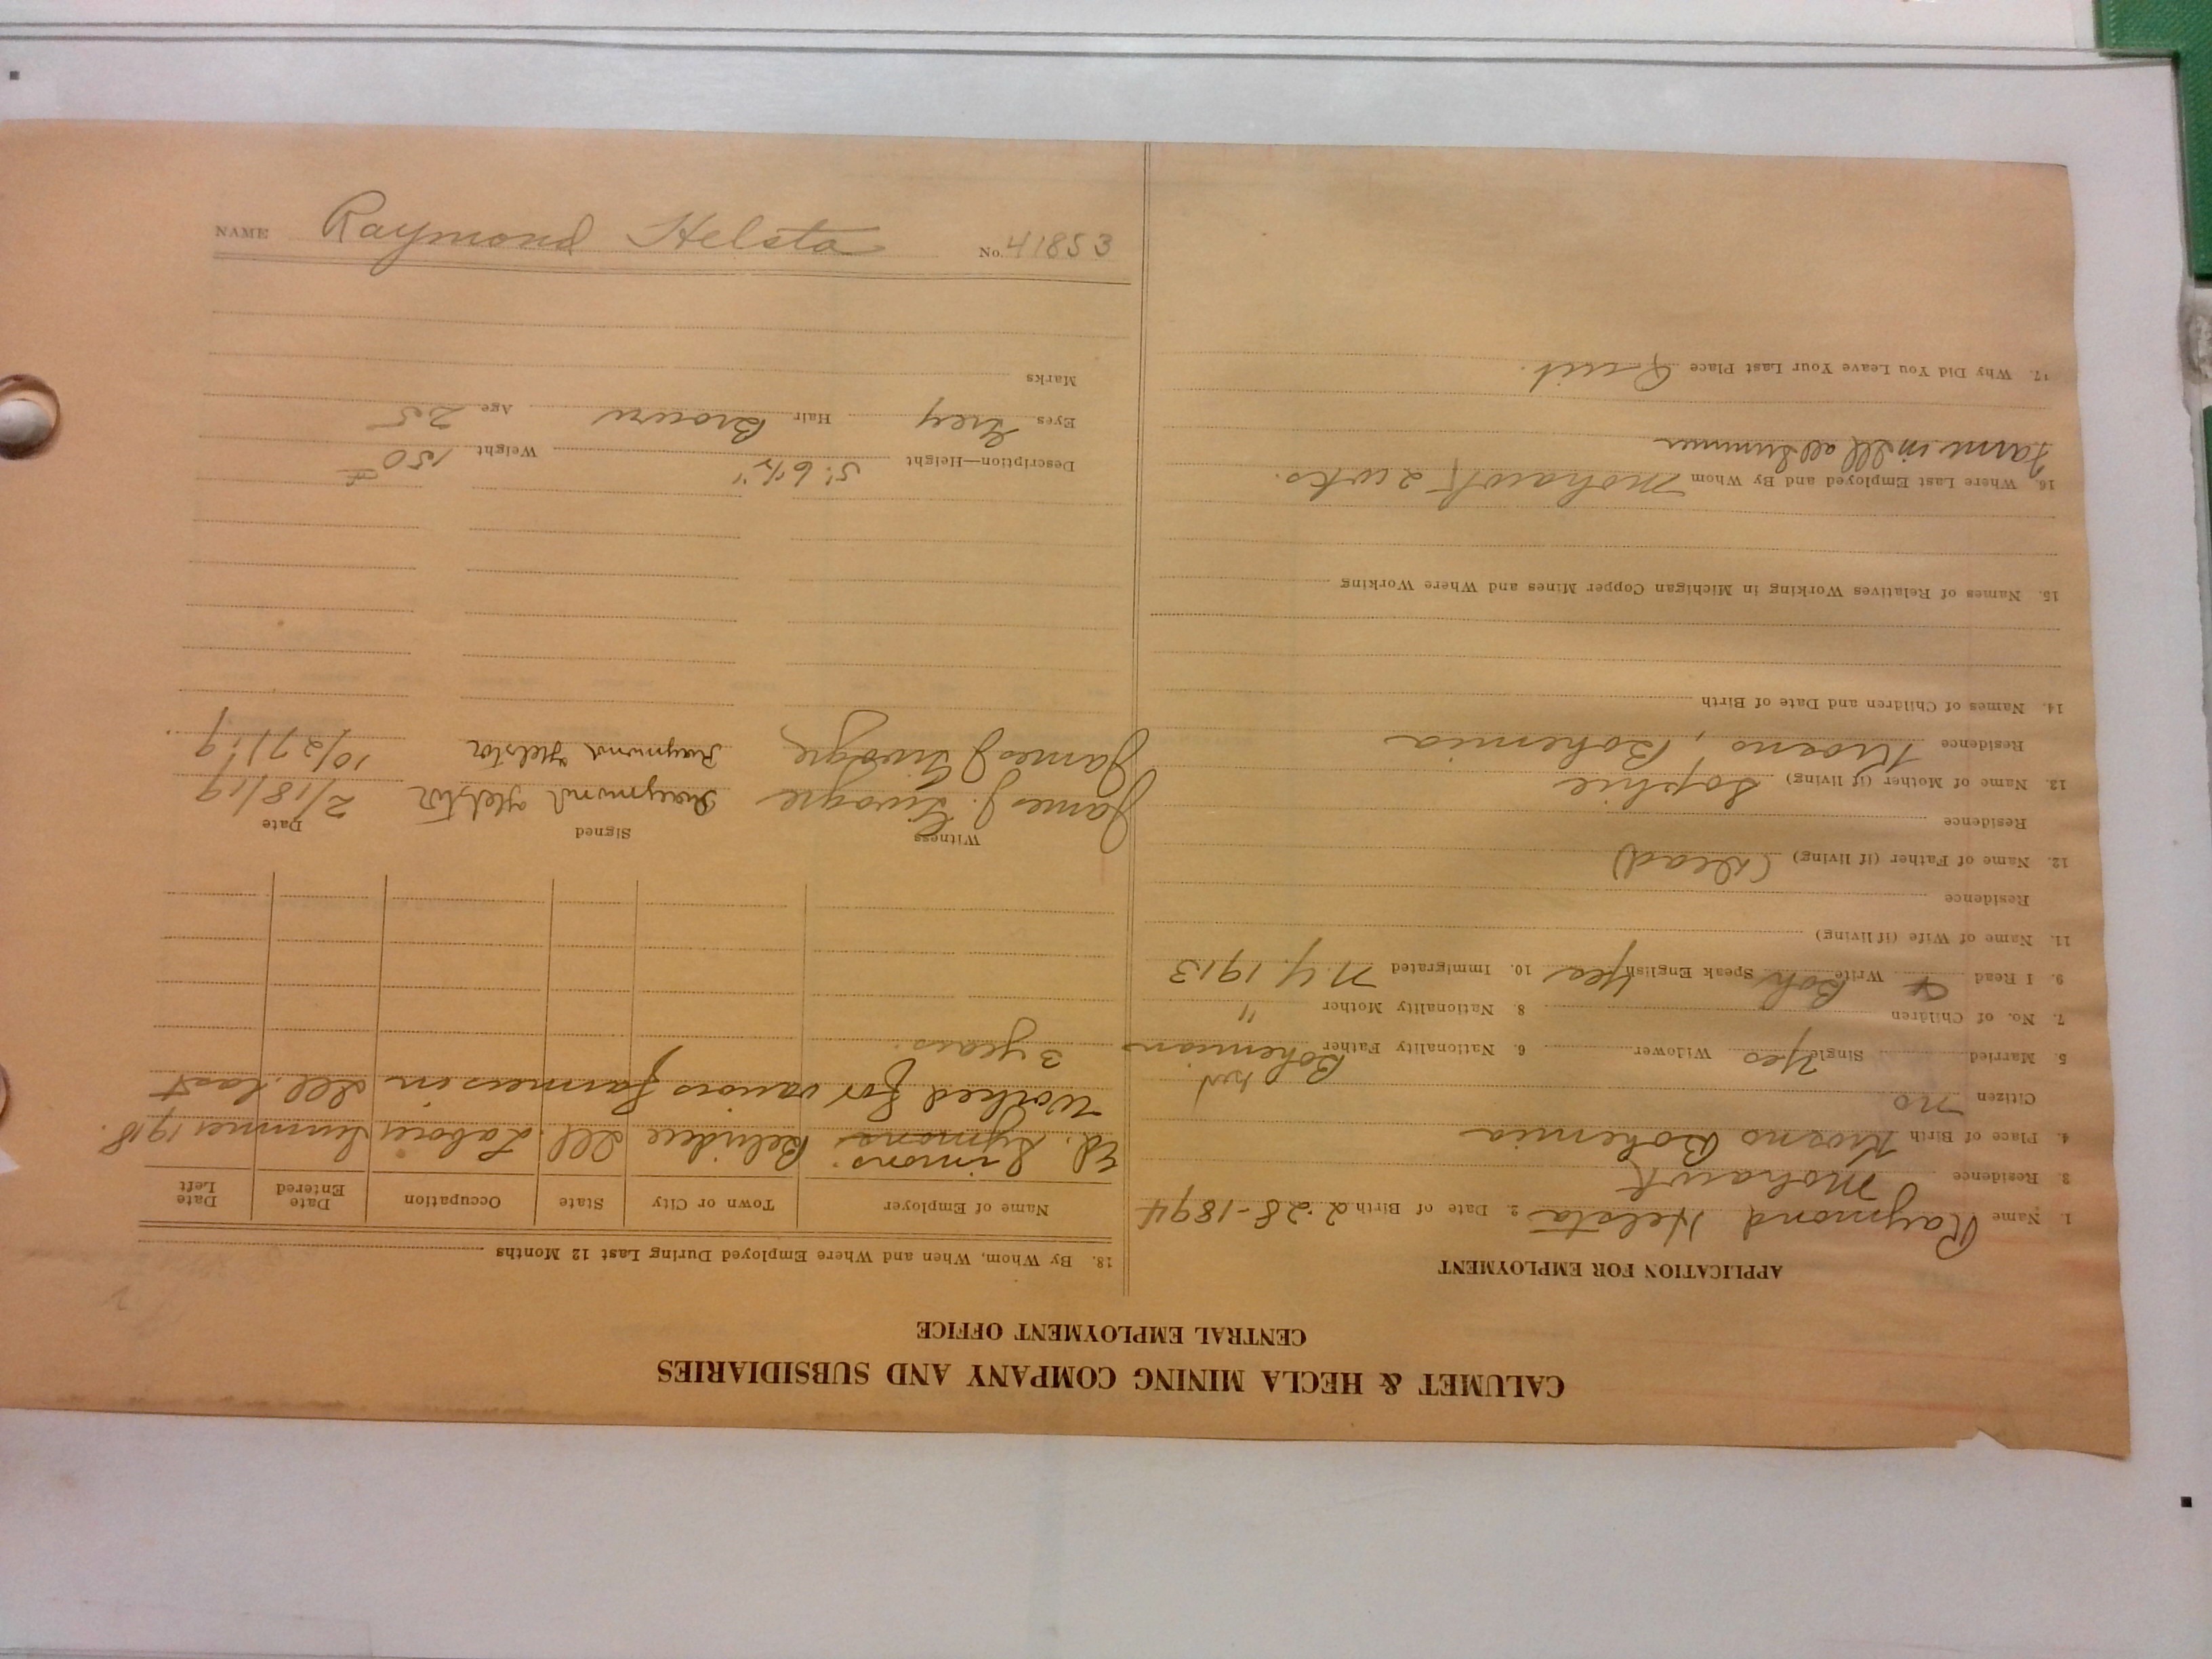 CALUMET & HECLA MINING COMPANY AND SUBSIDIARIES
CENTRAL EMPLOYMENT OFFICE
APPLICATION FOR EMPLOYMENT
1. Name Raymond Helsta 2. Date of Birth 2-28-1894
3. Residence Mohawk
4. Place of Birth Krosno Bohemia
Citizen no
5. Married Single Yes Widower 6. Nationality Father Bohemian
7. No. of Children 8. Nationality Mother "
9. I Read & Write Boh Speak English Yea 10. Immigrated N.Y. 1913
11. Name of Wife (if living)
Residence
12. Name of Father (if living) (dead)
Residence
13. Name of Mother (if living) Sophie
Residence Krosno, Bohemia
14. Names of Children and Date of Birth
15. Names of Relatives Working in Michigan Copper Mines and Where Working
16. Where Last Employed and By Whom Mohawk 2 wks.
Farm in Ill all summer
17. Why Did You Leave Your Last Place Quit.
18. By Whom, When and Where Employed During Last 12 Months
Name of Employer Town or City State Occupation Date Entered Date Left
Ed. Symons Simons. Belvidere Ill. Laborer Summer 1918.
Worked for various farmers in Ill. last
3 years.
Witness Signed Date
James J. Raymond Helsta 2/18/19
James J. Raymond Helsta 10/27/19.
Description—Height 5' 6½" Weight 150 #
Eyes Grey Hair Brown Age 25
Marks
NAME Raymond Helsta No. 41853